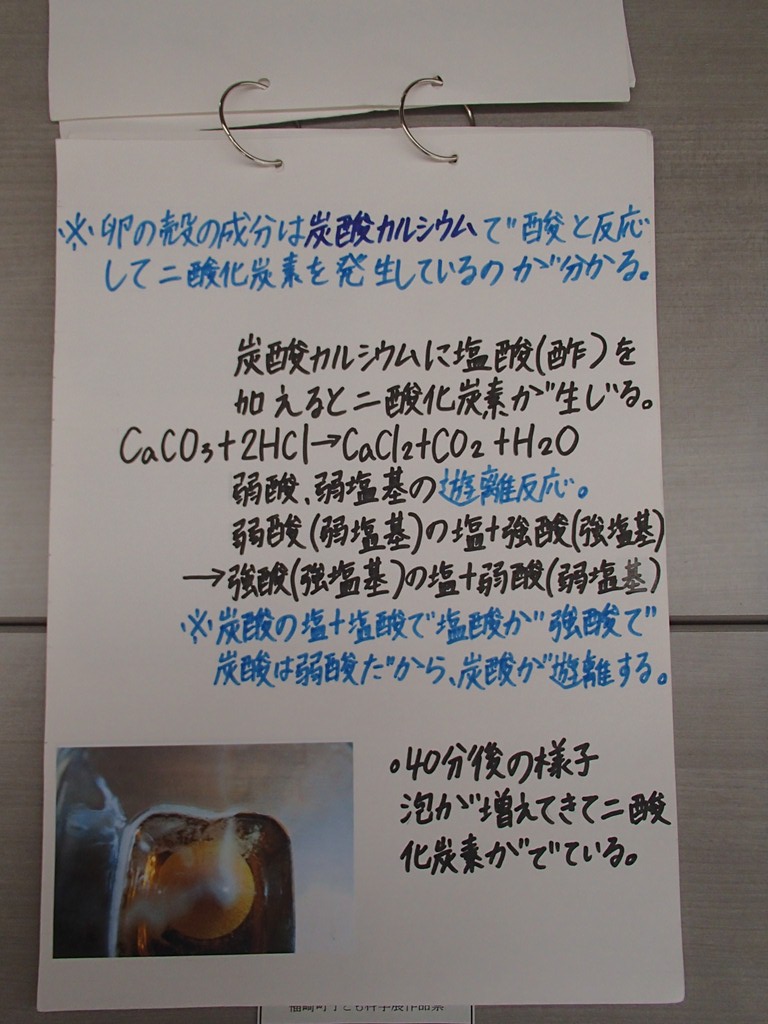 ※卵の殻の成分は炭酸カルシウムで酸と反応
して二酸化炭素を発生しているのが分かる。
炭酸カルシウムに塩酸(酢)を
加えると二酸化炭素が生じる。
CaCO₃+2HCl→CaCl₂+CO₂+H₂O
弱酸、弱塩基の遊離反応。
弱酸(弱塩基)の塩+強酸(強塩基)
→強酸(強塩基)の塩+弱酸(弱塩基)
※炭酸の塩+塩酸で塩酸が強酸で
炭酸は弱酸だから、炭酸が遊離する。
。40分後の様子
泡が増えてきて二酸
化炭素がでている。